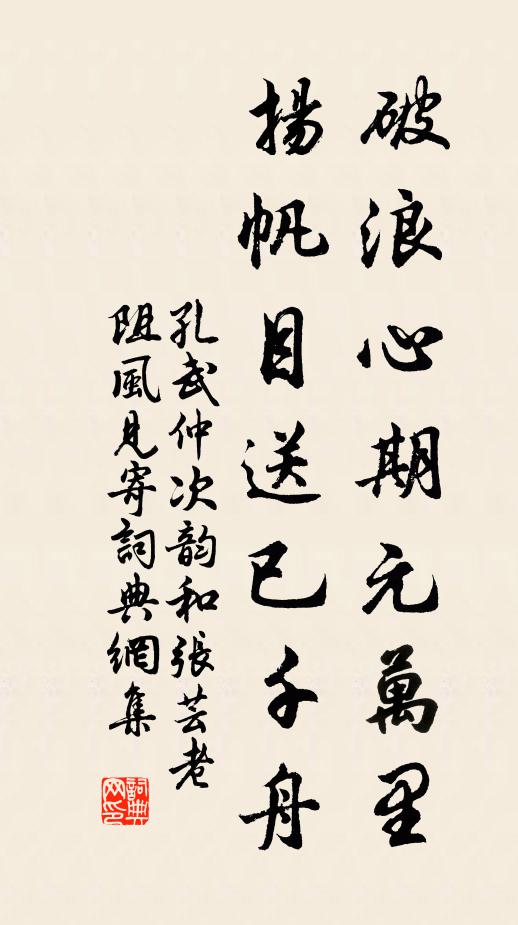 破浪心期元萬里
揚帆目送已千舟
孔武仲次韵和張芸老
阻風見寄詞典網集
詞典
网印